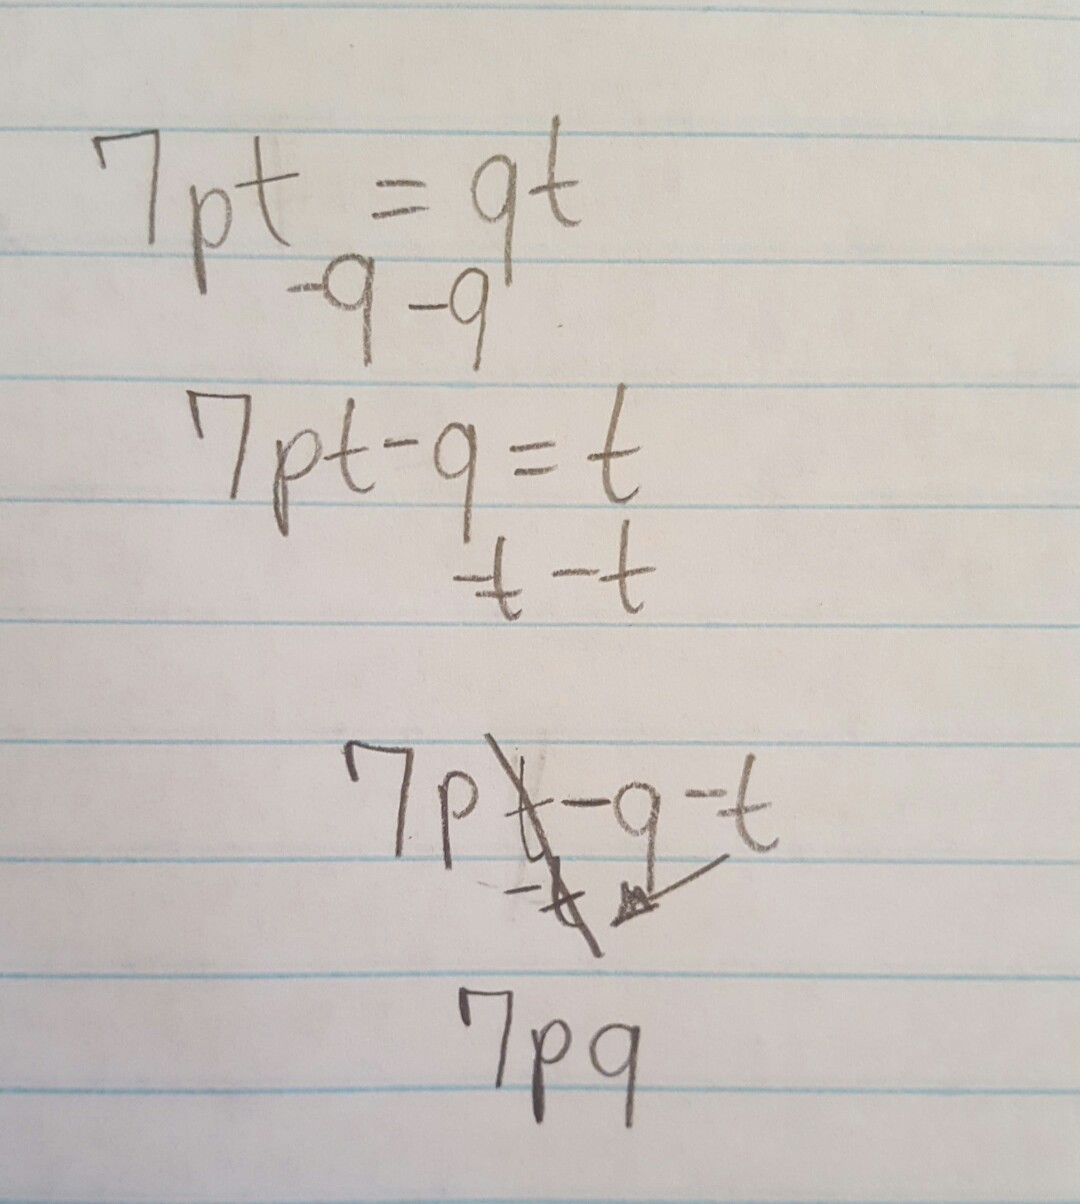 7pt = qt
-q -q
7pt - q = t
-t -t
7pt - q - t
-t
7pq